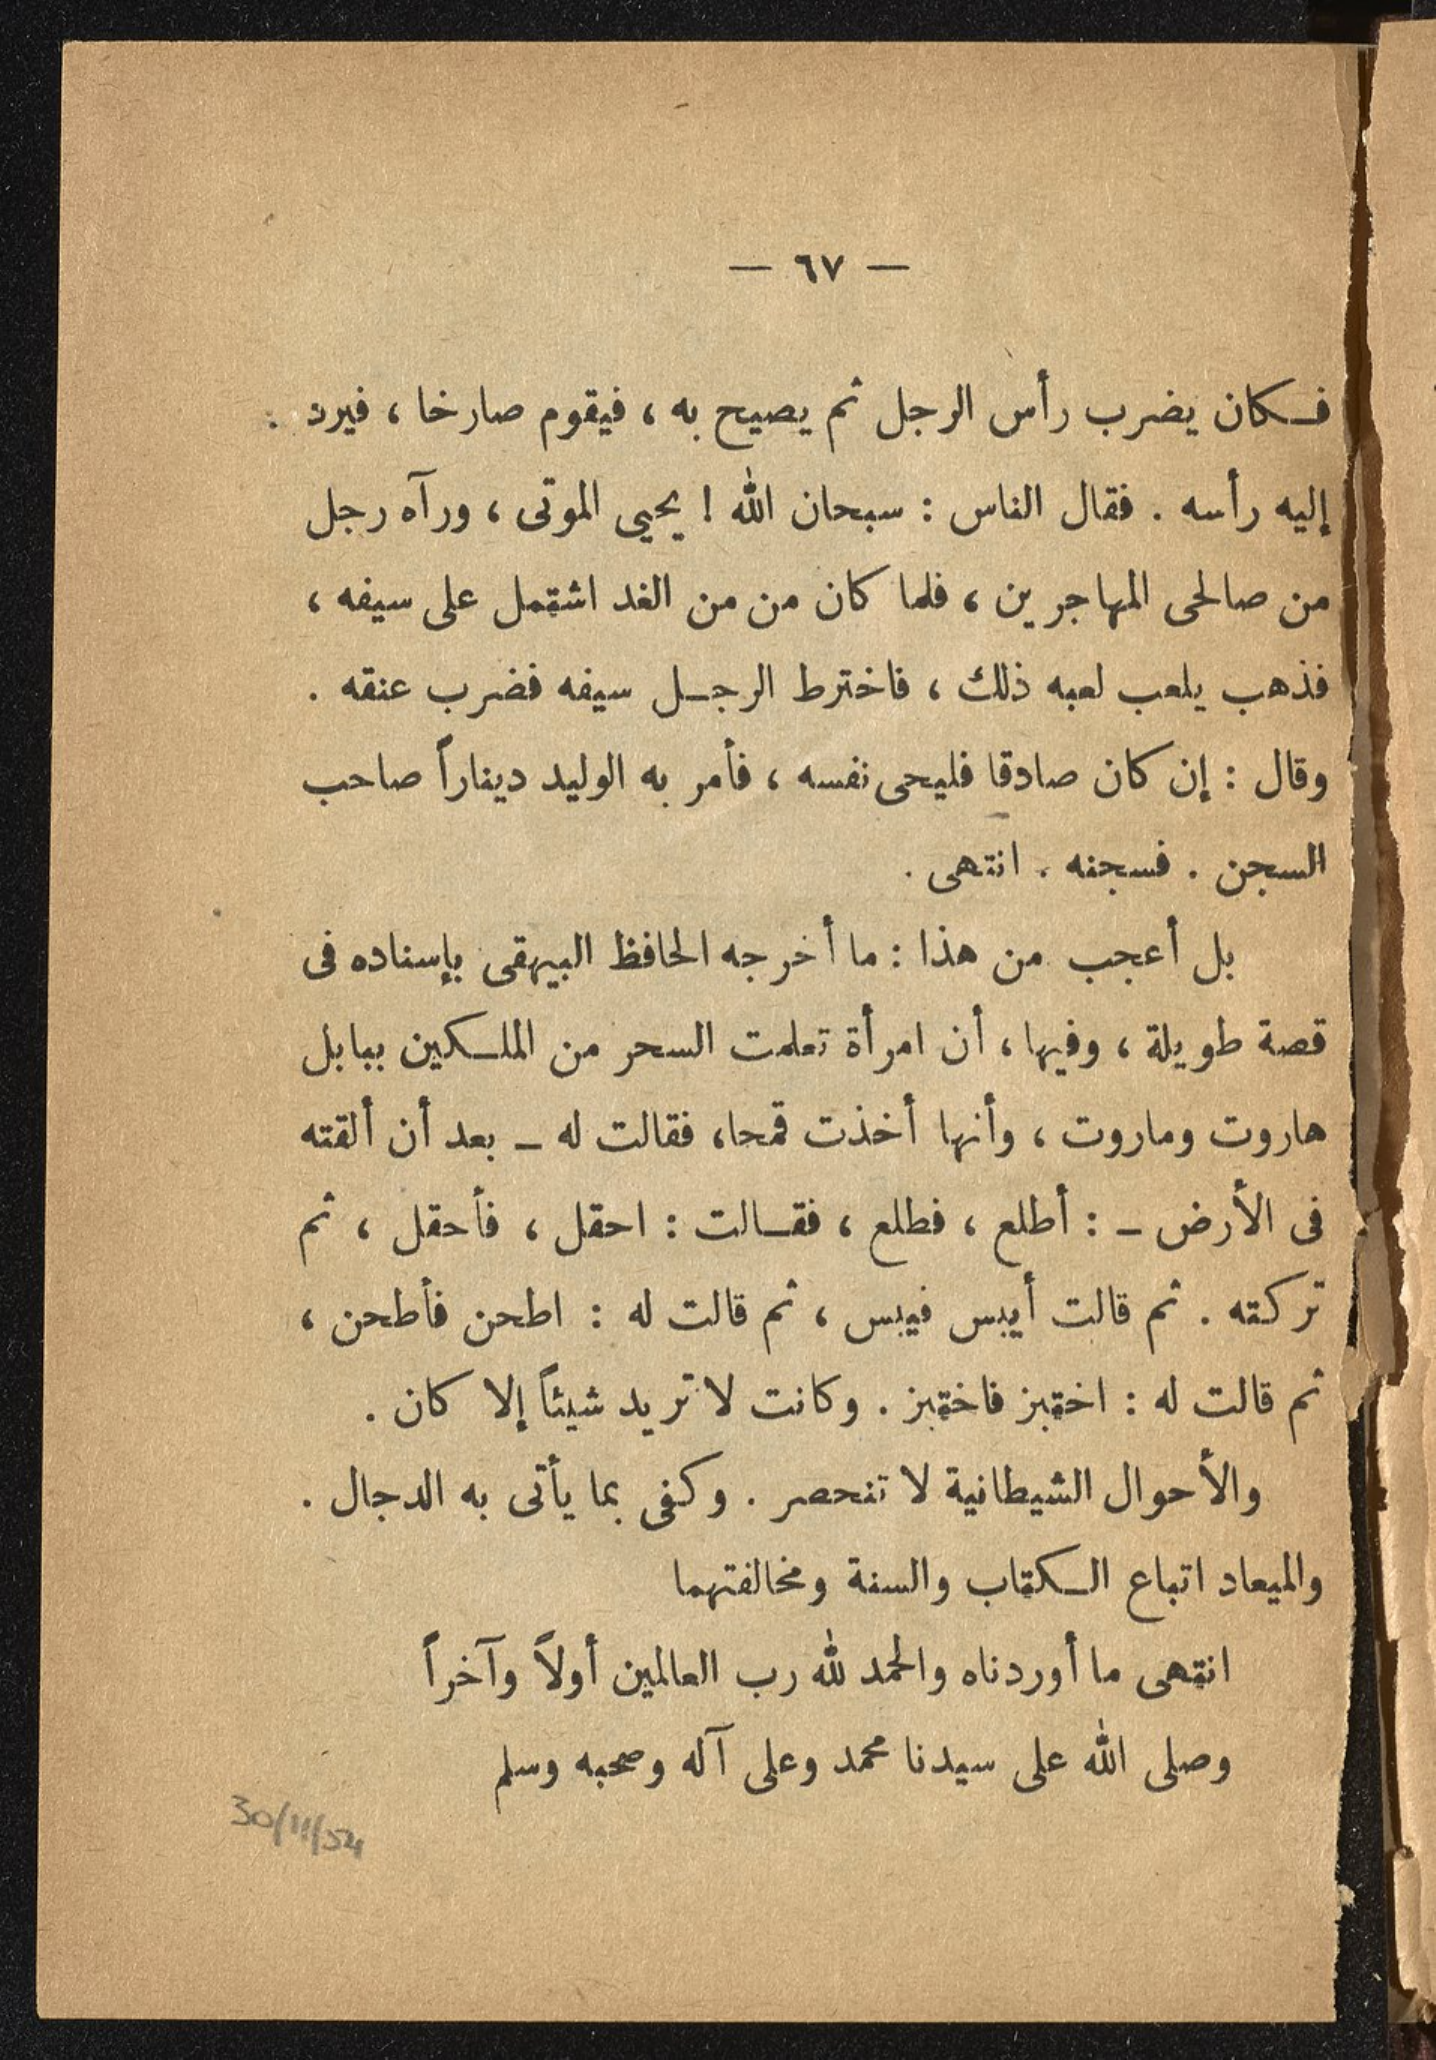 — ٦٧ —
فكان يضرب رأس الرجل ثم يصيح به ، فيقوم صارخا ، فيرد
إليه رأسه . فقال الناس : سبحان الله ! يحيى الموتى ، ورآه رجل
من صالحى المهاجرين ، فلما كان من من الغد اشتمل على سيفه ،
فذهب يلعب لعبه ذلك ، فاخترط الرجل سيفه فضرب عنقه .
وقال : إن كان صادقا فليحى نفسه ، فأمر به الوليد ديناراً صاحب
السجن . فسجنه . انتهى .
بل أعجب من هذا : ما أخرجه الحافظ البيهقى بإسناده فى
قصة طويلة ، وفيها ، أن امرأة تعلمت السحر من الملكين ببابل
هاروت وماروت ، وأنها أخذت قمحا، فقالت له ـ بعد أن ألقته
فى الأرض ـ : أطلع ، فطلع ، فقالت : احقل ، فأحقل ، ثم
تركته . ثم قالت أيبس فيبس ، ثم قالت له : اطحن فأطحن ،
ثم قالت له : اختبز فاختبز . وكانت لا تريد شيئاً إلا كان .
والأحوال الشيطانية لا تنحصر . وكفى بما يأتى به الدجال .
والميعاد اتباع الكتاب والسنة ومخالفتهما
انتهى ما أوردناه والحمد لله رب العالمين أولاً وآخراً
وصلى الله على سيدنا محمد وعلى آله وصحبه وسلم
30/11/54